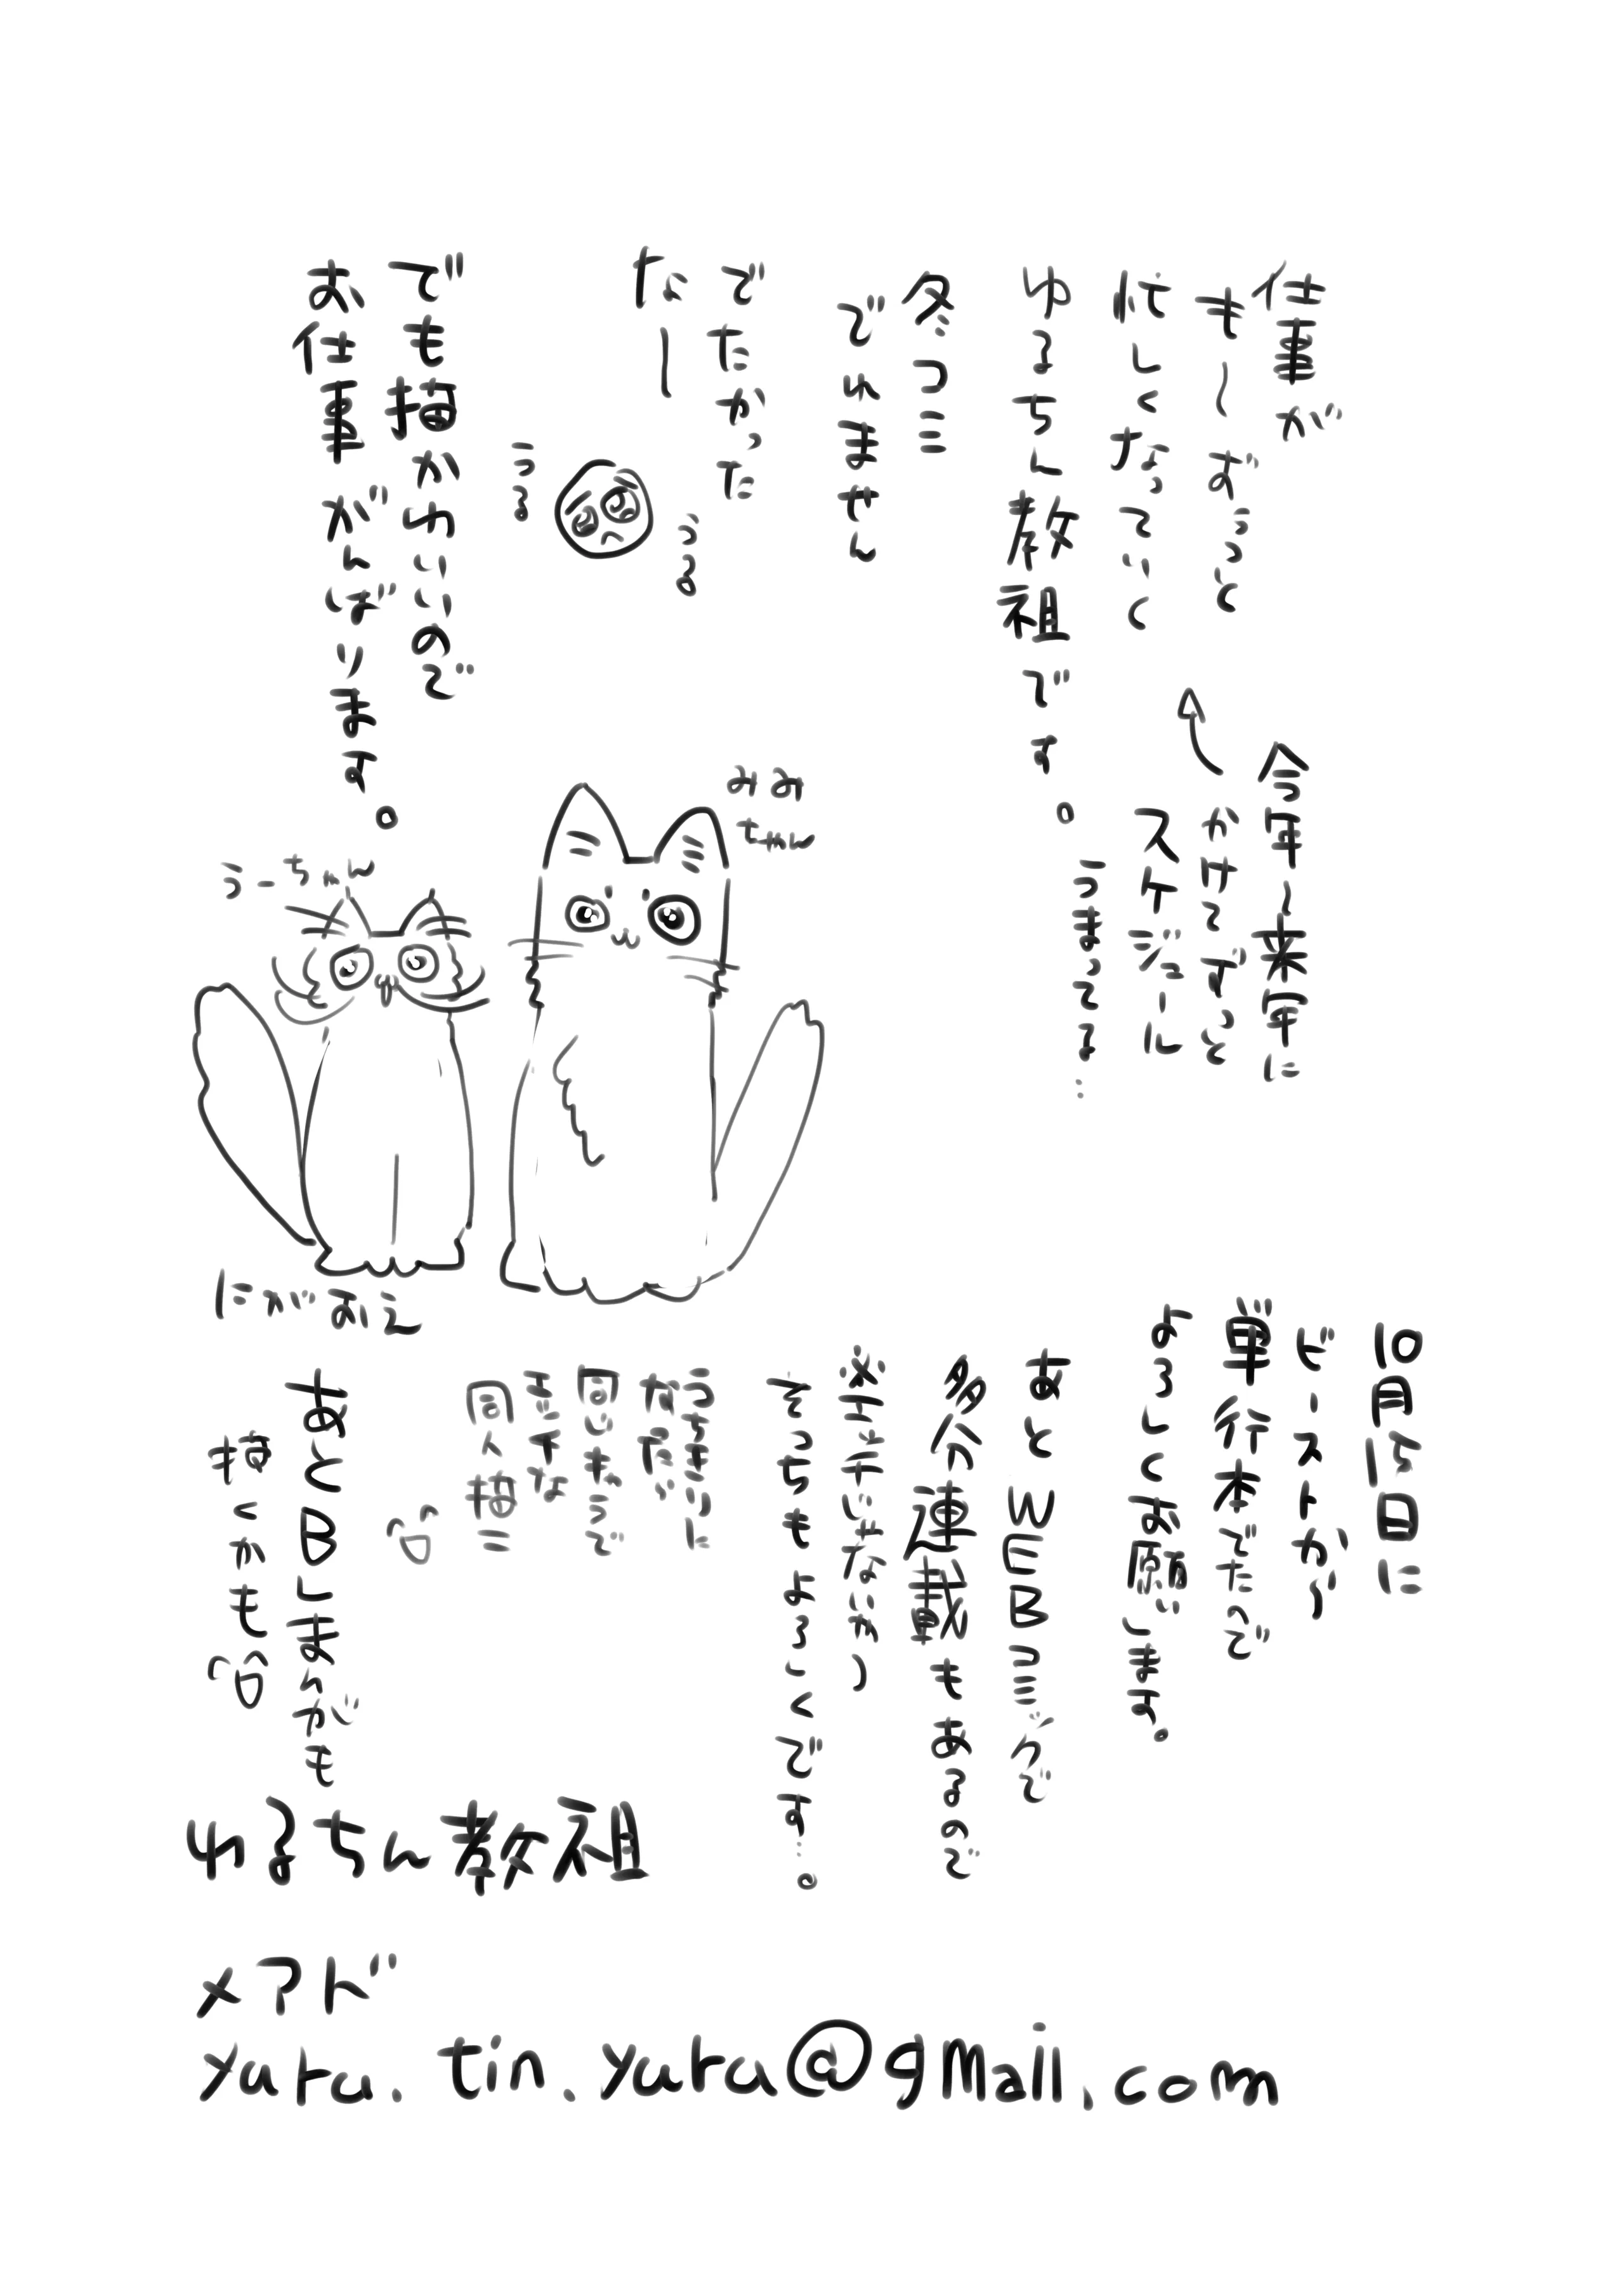 仕事が
も〜おっと
忙しくなっていく
ゆるちん教祖です。
今年〜来年に
かけてずっと
スケジュール
うまってる…
冬コミ
でれません
でたかった
なー
うる
うる
でも描かわいいので
お仕事がんばります。
みみ
ちゃん
うーちゃん
にがおえ
10月15日に
ビーストから
単行本でたので
よろしくお願いします。
あとWEB
多分連載もあるので
そっちもよろしくです…。
うちきりに
なったら
同じキャラで
同人描こ
あとBLまんがも
描くかも
ゆるちん教祖
メアド
yuru.tin.yuru@gmail.com